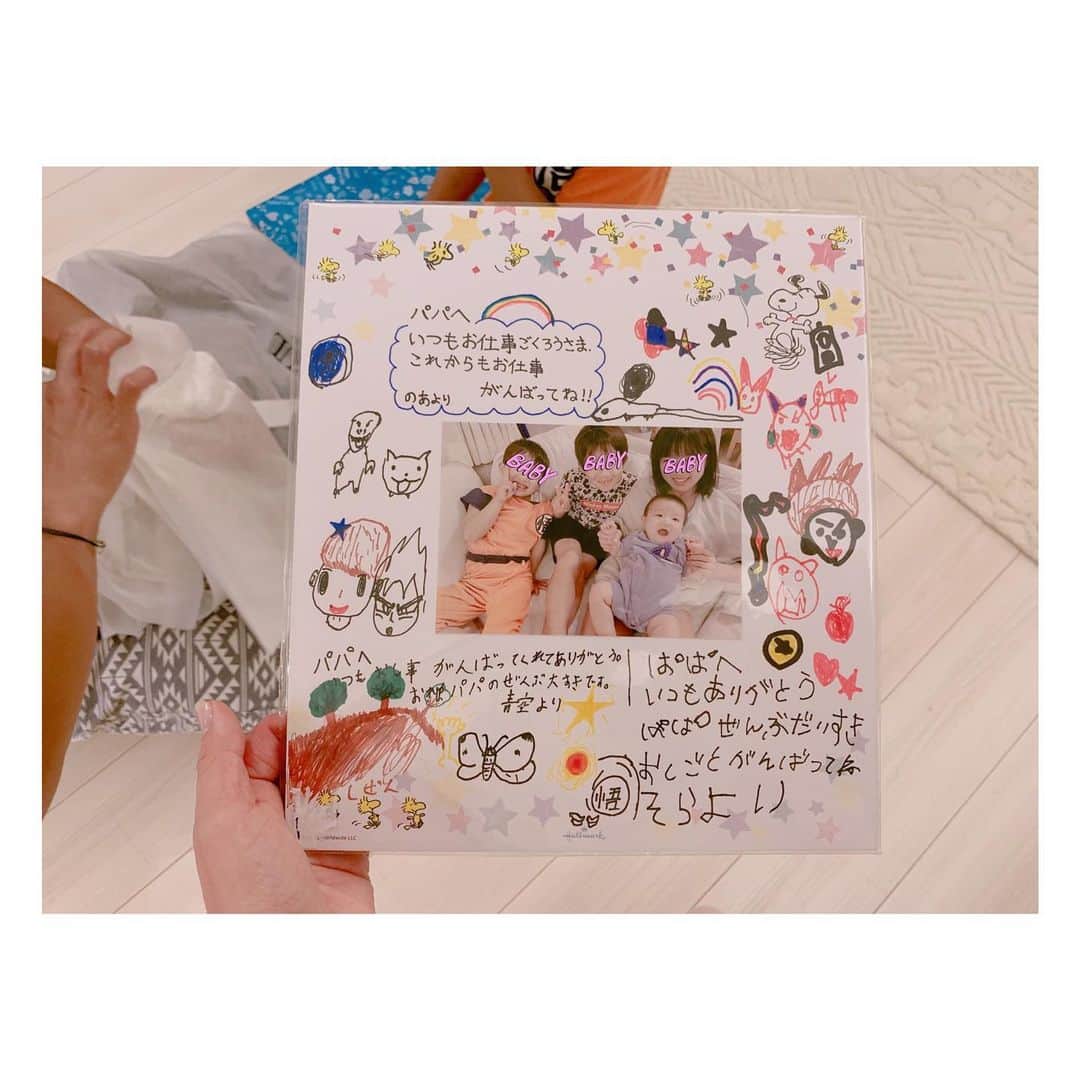 パパへ
いつもお仕事ごくろうさま、
これからもお仕事
がんばってね!!
のあより
BABY
BABY
BABY
パパへ
いつも
事 がんばってくれてありがとう。
パパのぜんぶ大すきです。
青空より
ぱぱへ
いつもありがとう
ぱぱ ぜんぶだいすき
おしごとがんばってね
そらより
悟
Hallmark
LLC